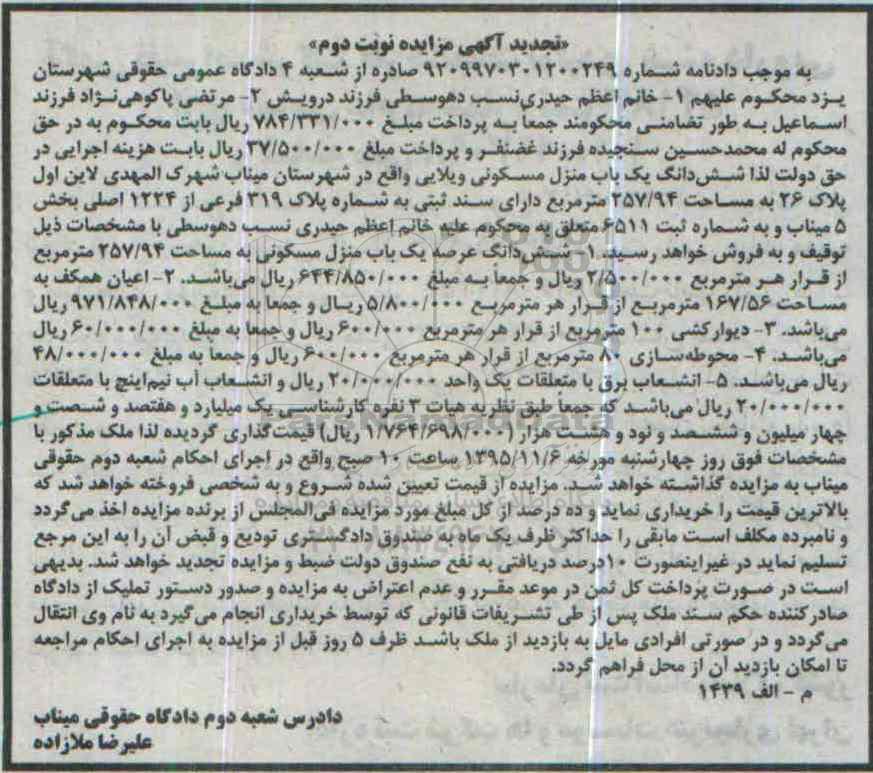 «تجدید آگهی مزایده نوبت دوم»
به موجب دادنامه شماره ۹۲۰۹۹۷۰۳۰۱۲۰۰۲۴۹ صادره از شعبه ۴ دادگاه عمومی حقوقی شهرستان
یزد محکوم علیهم ۱- خانم اعظم حیدری‌نسب دهوسطی فرزند درویش ۲- مرتضی پاکوهی‌نژاد فرزند
اسماعیل به طور تضامنی محکومند جمعا به پرداخت مبلغ ۷۸۴/۳۳۱/۰۰۰ ریال بابت محکوم به در حق
محکوم له محمدحسین سنجیده فرزند غضنفر و پرداخت مبلغ ۳۷/۵۰۰/۰۰۰ ریال بابت هزینه اجرایی در
حق دولت لذا شش‌دانگ یک باب منزل مسکونی ویلایی واقع در شهرستان میناب شهرک المهدی لاین اول
پلاک ۲۶ به مساحت ۲۵۷/۹۴ مترمربع دارای سند ثبتی به شماره پلاک ۳۱۹ فرعی از ۱۲۲۴ اصلی بخش
۵ میناب و به شماره ثبت ۶۵۱۱ متعلق به محکوم علیه خانم اعظم حیدری نسب دهوسطی با مشخصات ذیل
توقیف و به فروش خواهد رسید. ۱- شش‌دانگ عرصه یک باب منزل مسکونی به مساحت ۲۵۷/۹۴ مترمربع
از قرار هر مترمربع ۲/۵۰۰/۰۰۰ ریال و جمعاً به مبلغ ۶۴۴/۸۵۰/۰۰۰ ریال می‌باشد. ۲- اعیان همکف به
مساحت ۱۶۷/۵۶ مترمربع از قرار هر مترمربع ۵/۸۰۰/۰۰۰ ریال و جمعا به مبلغ ۹۷۱/۸۴۸/۰۰۰ ریال
می‌باشد. ۳- دیوارکشی ۱۰۰ مترمربع از قرار هر مترمربع ۶۰۰/۰۰۰ ریال و جمعا به مبلغ ۶۰/۰۰۰/۰۰۰ ریال
می‌باشد. ۴- محوطه‌سازی ۸۰ مترمربع از قرار هر مترمربع ۶۰۰/۰۰۰ ریال و جمعا به مبلغ ۴۸/۰۰۰/۰۰۰
ریال می‌باشد. ۵- انشعاب برق با متعلقات یک واحد ۲۰/۰۰۰/۰۰۰ ریال و انشعاب آب نیم‌اینچ با متعلقات
۲۰/۰۰۰/۰۰۰ ریال می‌باشد که جمعاً طبق نظریه هیات ۳ نفره کارشناسی یک میلیارد و هفتصد و شصت و
چهار میلیون و ششصد و نود و هشت هزار (۱/۷۶۴/۶۹۸/۰۰۰ ریال) قیمت‌گذاری گردیده لذا ملک مذکور با
مشخصات فوق روز چهارشنبه مورخه ۱۳۹۵/۱۱/۶ ساعت ۱۰ صبح واقع در اجرای احکام شعبه دوم حقوقی
میناب به مزایده گذاشته خواهد شد. مزایده از قیمت تعیین شده شروع و به شخصی فروخته خواهد شد که
بالاترین قیمت را خریداری نماید و ده درصد از کل مبلغ مورد مزایده فی‌المجلس از برنده مزایده اخذ می‌گردد
و نامبرده مکلف است مابقی را حداکثر ظرف یک ماه به صندوق دادگستری تودیع و قبض آن را به این مرجع
تسلیم نماید در غیراینصورت ۱۰درصد دریافتی به نفع صندوق دولت ضبط و مزایده تجدید خواهد شد. بدیهی
است در صورت پرداخت کل ثمن در موعد مقرر و عدم اعتراض به مزایده و صدور دستور تملیک از دادگاه
صادرکننده حکم سند ملک پس از طی تشریفات قانونی که توسط خریداری انجام می‌گیرد به نام وی انتقال
می‌گردد و در صورتی افرادی مایل به بازدید از ملک باشد ظرف ۵ روز قبل از مزایده به اجرای احکام مراجعه
تا امکان بازدید آن از محل فراهم گردد.
م - الف ۱۴۳۹
دادرس شعبه دوم دادگاه حقوقی میناب
علیرضا ملازاده